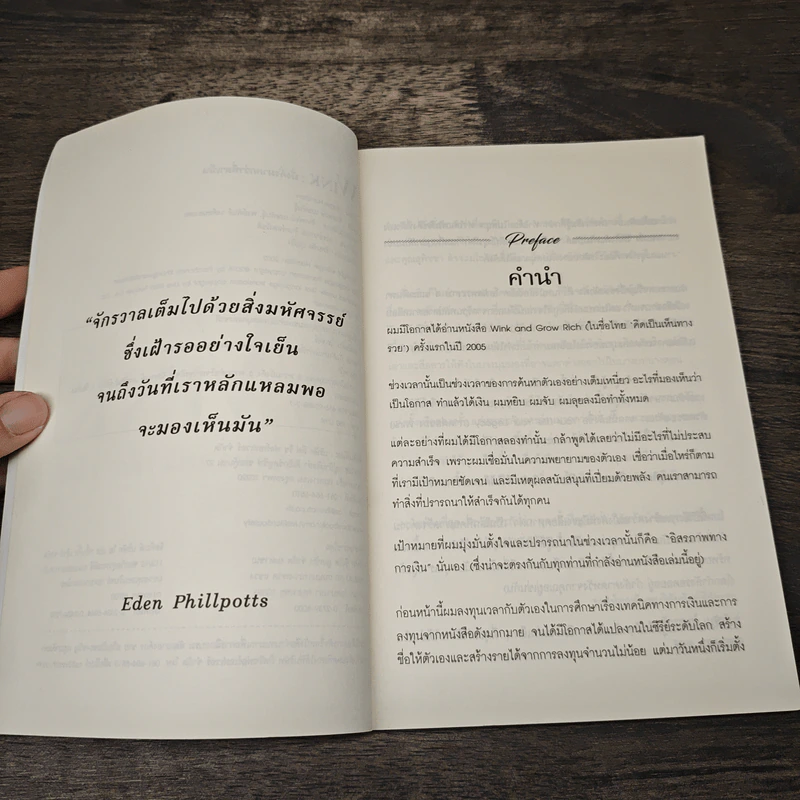 “จักรวาลเต็มไปด้วยสิ่งมหัศจรรย์
ซึ่งเฝ้ารออย่างใจเย็น
จนถึงวันที่เราหลักแหลมพอ
จะมองเห็นมัน”
Eden Phillpotts
Preface
คำนำ
ผมมีโอกาสได้อ่านหนังสือ Wink and Grow Rich (ในชื่อไทย 'คิดเป็นเห็นทาง
รวย') ครั้งแรกในปี 2005
ช่วงเวลานั้นเป็นช่วงเวลาของการค้นหาตัวเองอย่างเต็มเหนี่ยว อะไรที่มองเห็นว่า
เป็นโอกาส ทำแล้วได้เงิน ผมหยิบ ผมจับ ผมลุยลงมือทำทั้งหมด
แต่ละอย่างที่ผมได้มีโอกาสลองทำนั้น กล้าพูดได้เลยว่าไม่มีอะไรที่ไม่ประสบ
ความสำเร็จ เพราะผมเชื่อมั่นในความพยายามของตัวเอง เชื่อว่าเมื่อไหร่ก็ตาม
ที่เรามีเป้าหมายชัดเจน และมีเหตุผลสนับสนุนที่เปี่ยมด้วยพลัง คนเราสามารถ
ทำสิ่งที่ปรารถนาให้สำเร็จกันได้ทุกคน
เป้าหมายที่ผมมุ่งมั่นตั้งใจและปรารถนาในช่วงเวลานั้นก็คือ “อิสรภาพทาง
การเงิน” นั่นเอง (ซึ่งน่าจะตรงกันกับทุกท่านที่กำลังอ่านหนังสือเล่มนี้อยู่)
ก่อนหน้านี้ผมลงทุนเวลากับตัวเองในการศึกษาเรื่องเทคนิคทางการเงินและการ
ลงทุนจากหนังสือดังมากมาย จนได้มีโอกาสได้แปลงานในซีรีย์ระดับโลก สร้าง
ชื่อให้ตัวเองและสร้างรายได้จากการลงทุนจำนวนไม่น้อย แต่มาวันหนึ่งก็เริ่มตั้ง